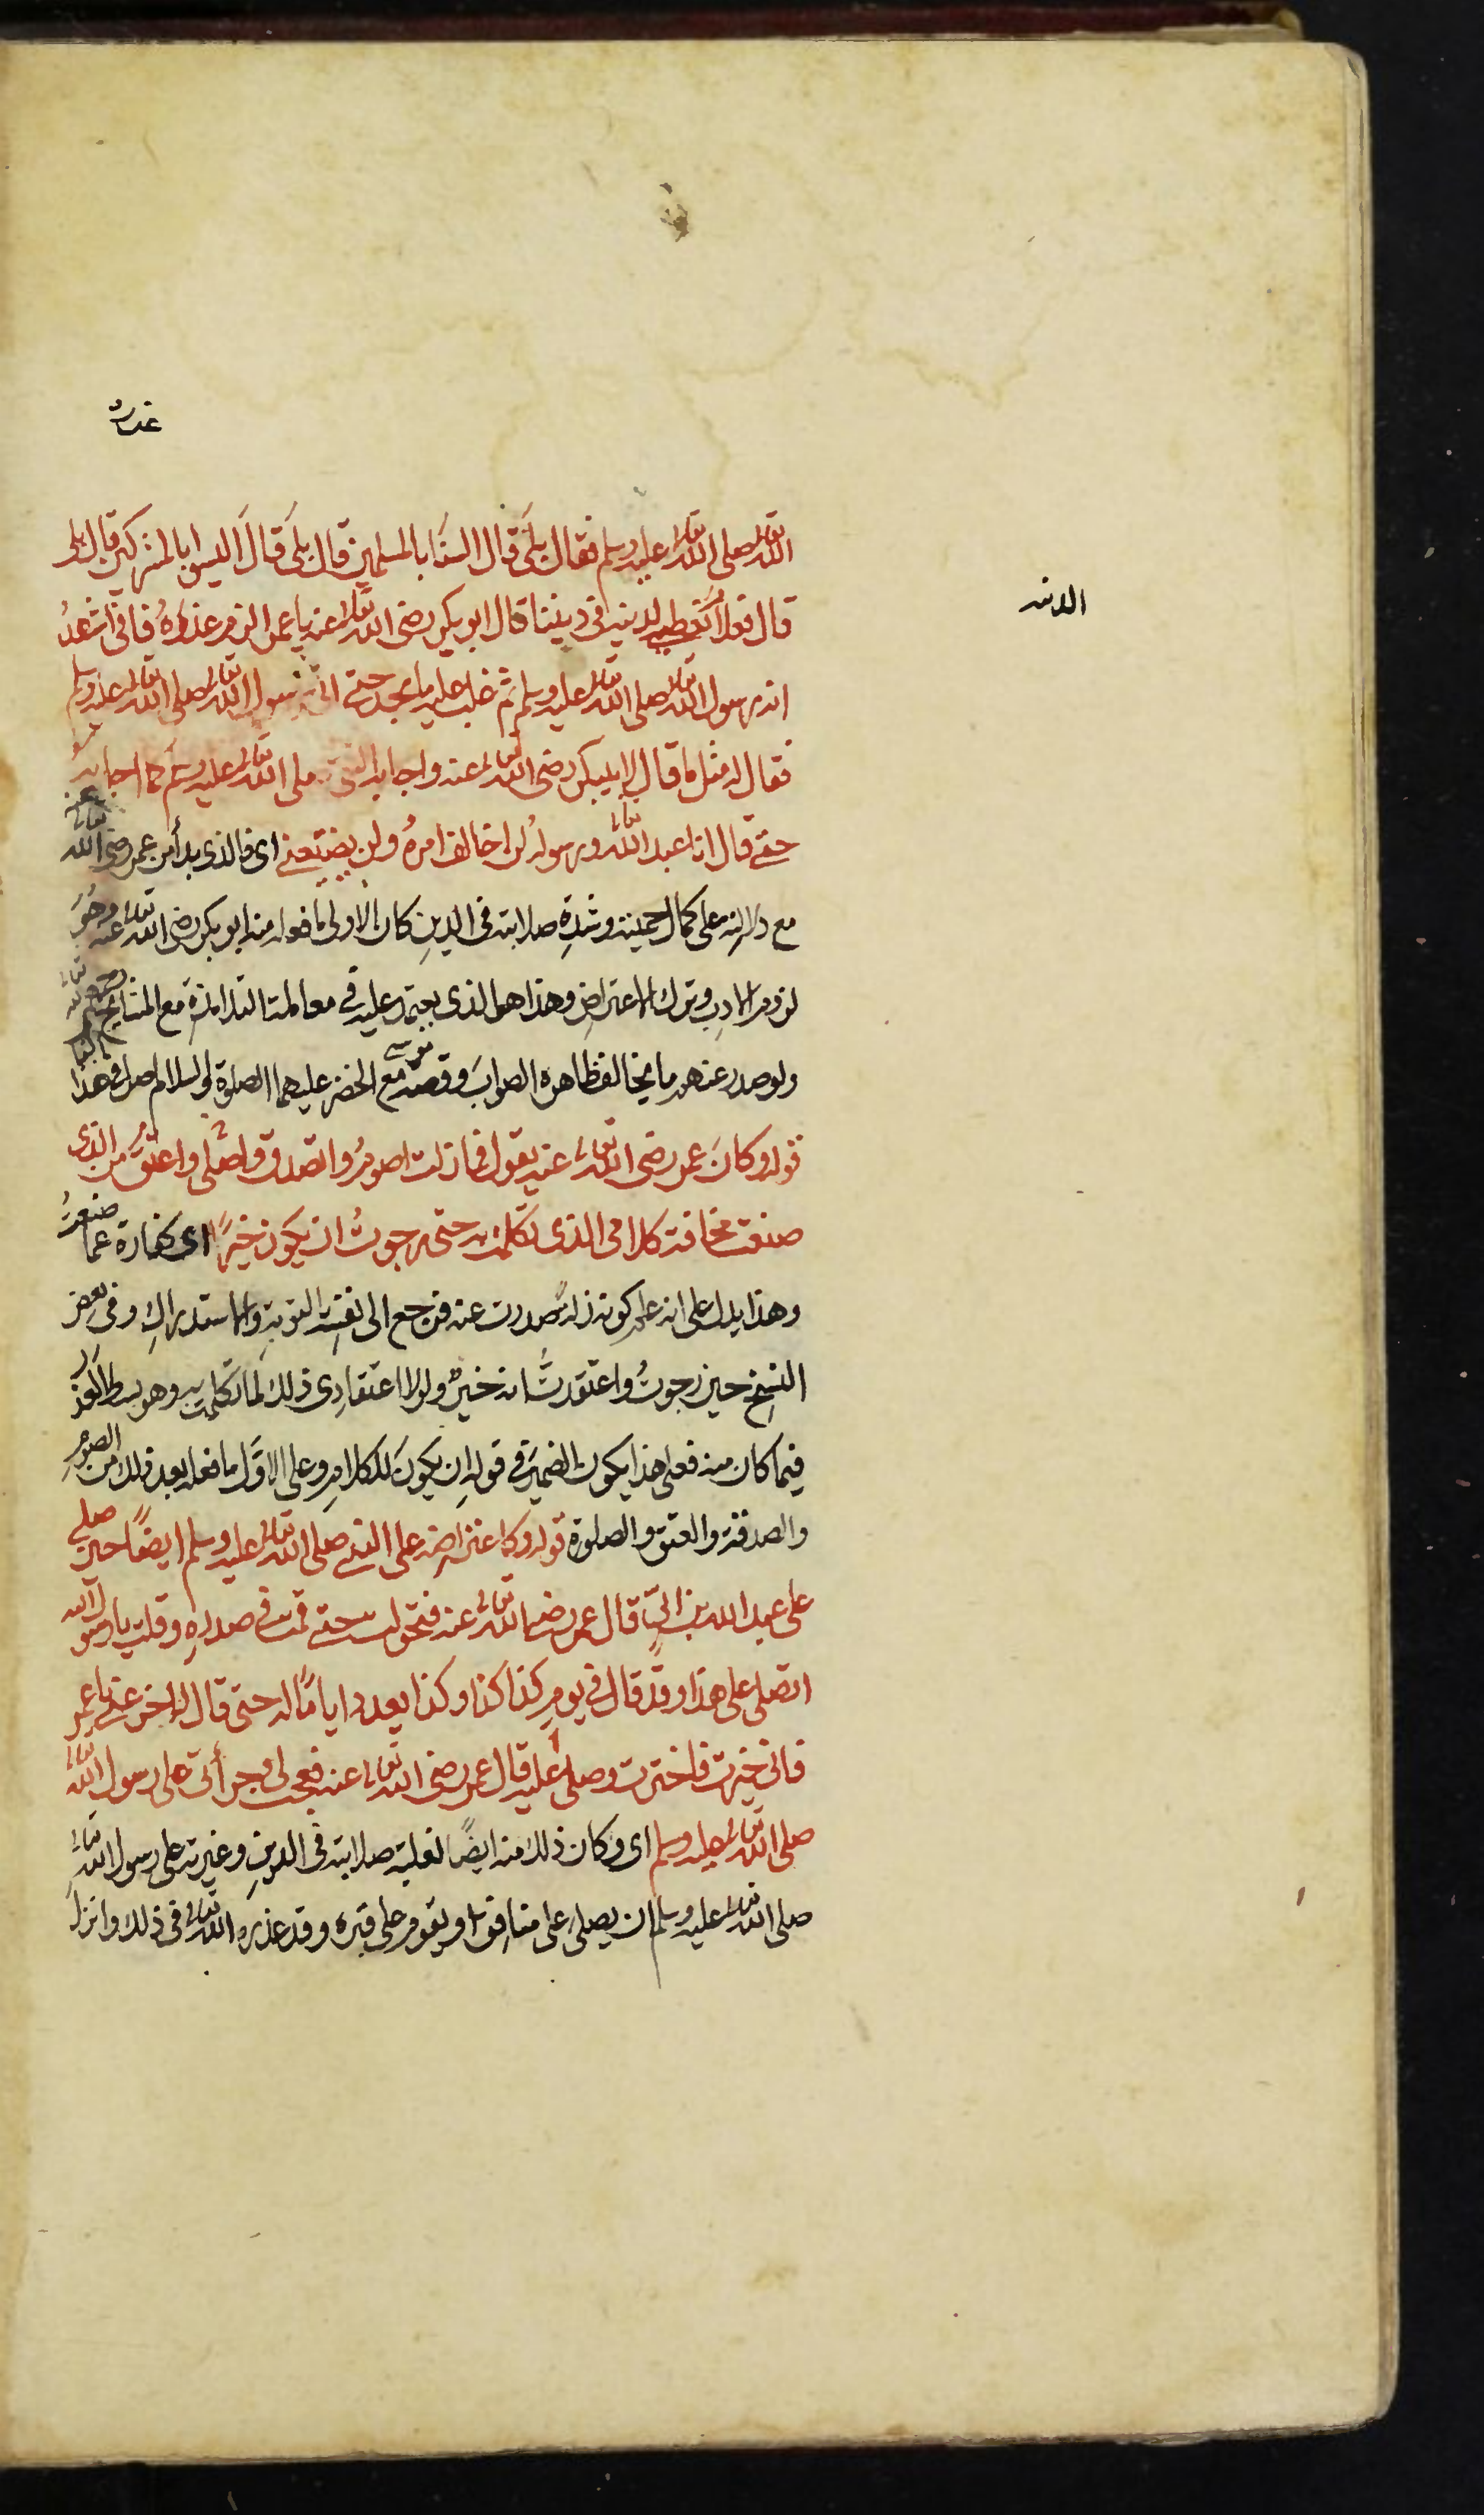 غدره
الله تعالى صلى الله تعالى عليه وسلم فقال بلى قال السنا بالمسلمين قال بلى قال اليسوا بالمشركين قال بلى
الدنيه
قال فعلام نعطى الدنية فى ديننا قال ابو بكر رضى الله تعالى عنه يا عمر الزم غرزه فانى اشهد
انه رسول الله تعالى صلى الله تعالى عليه وسلم ثم غلب عليه ما يجد حتى اتى رسول الله تعالى صلى الله تعالى عليه وسلم
فقال له مثل ما قال لابى بكر رضى الله تعالى عنه واجابه النبى صلى الله تعالى عليه وسلم كما اجابه
حتى قال انا عبد الله تعالى ورسوله لن اخالف امره ولن يضيعنى اى فالذى بدأ من عمر رضى الله تعالى عنه
مع دلالته على كمال حميته وشدة صلابته فى الدين كان الاولى ما فعله منه ابو بكر رضى الله تعالى عنه وهو
لزوم الادب وترك الاعتراض وهذا هو الذى يعتمد عليه فى معاملة التلامذة مع المشايخ
ولو صدر عنهم ما يخالف ظاهره الصواب وقصة موسى مع الخضر عليهما الصلوة والسلام اصل فى هذا
قوله وكان عمر رضى الله تعالى عنه يقول فما زلت اصوم واتصدق واصلى واعتق من الذى
صنعت مخافة كلامى الذى تكلمت به حتى رجوت ان يكون خيرا اى كفارة عما صنعت
وهذا يدل على انه علم كونه زلة صدرت عنه فرجع الى نفسه بالتوبة والاستدراك وفى بعض
النسخ حين رجوت واعتقدت انه خير ولولا اعتقادى ذلك لما تكلمت به وهو بسط العذر
فيما كان منه فعلى هذا يكون الضمير فى قوله ان يكون للكلام وعلى الاول ما فعله بعد ذلك من الصوم
والصدقة والعتق والصلوة قوله وكاعتراضه على النبى صلى الله تعالى عليه وسلم ايضا حين صلى
على عبد الله بن ابى قال عمر رضى الله تعالى عنه فتحولت حتى قمت فى صدره وقلت يا رسول الله
اتصلى على هذا وقد قال فى يوم كذا كذا وكذا يعدد اياما له حتى قال اخر عنى يا عمر
فانى خيرت فاخترت وصلى عليه قال عمر رضى الله تعالى عنه فعجب لى وجرأتى على رسول الله تعالى
صلى الله تعالى عليه وسلم اى وكان ذلك منه ايضا لغلبة صلابته فى الدين وغيرته على رسول الله تعالى
صلى الله تعالى عليه وسلم ان يصلى على منافق او يقوم على قبره وقد عذره الله تعالى فى ذلك وانزل